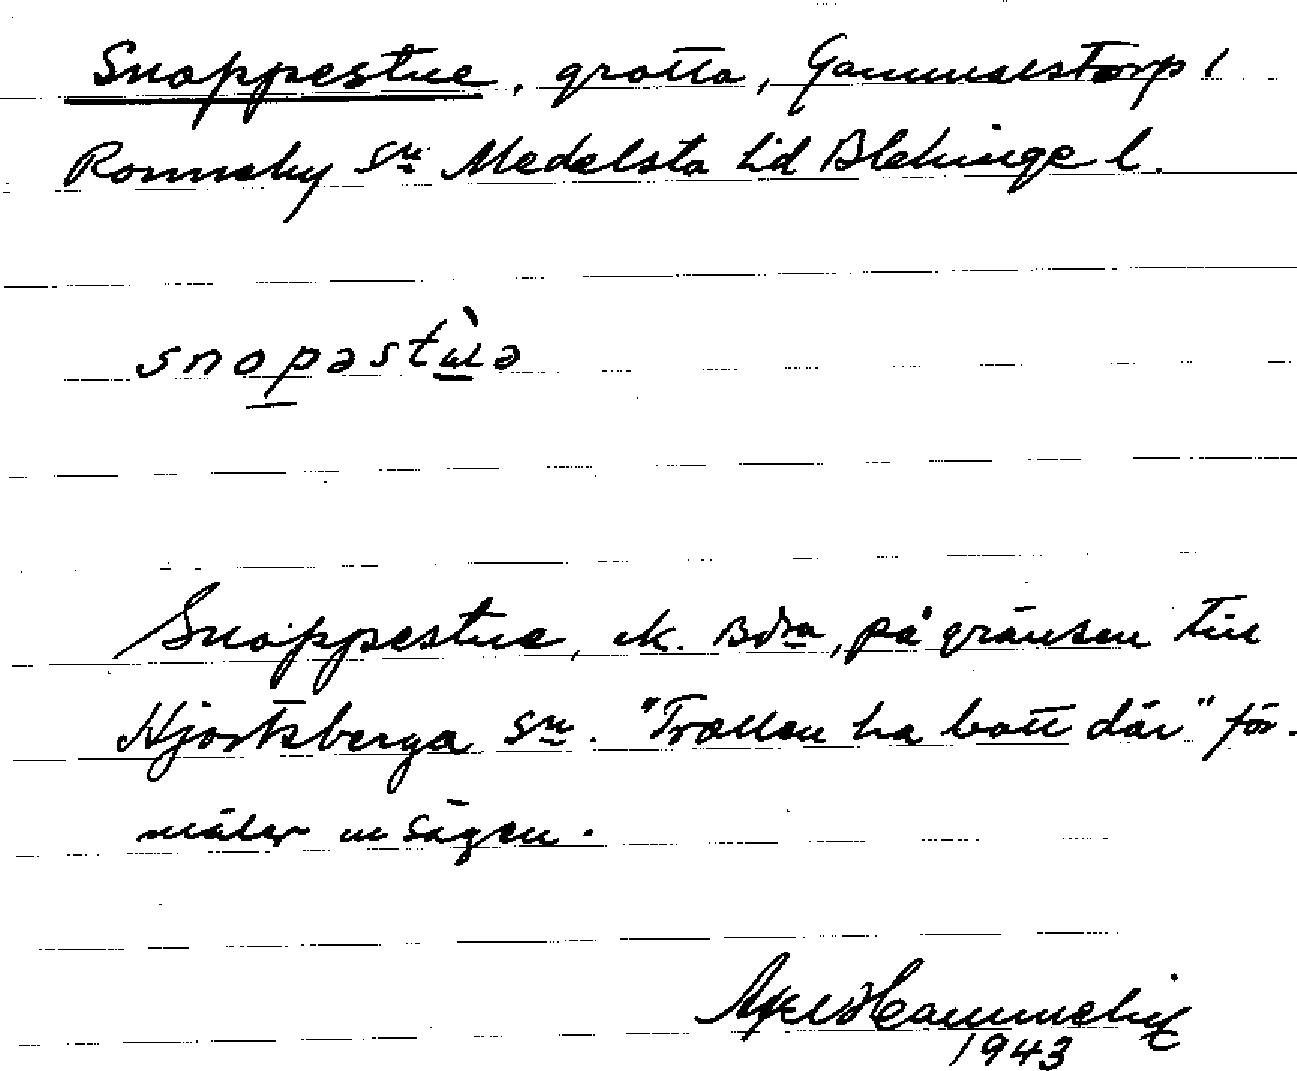 Snoppestue, grotta, Gammalstorp i
Ronneby sn Medelsta hd Blekinge l.
snopəstùə
Snoppestue, ek. Bdra, på gränsen till
Hjortsberga sn. "Trollen ha bott där" för-
mäler en sägen.
Axel Hammelin
1943